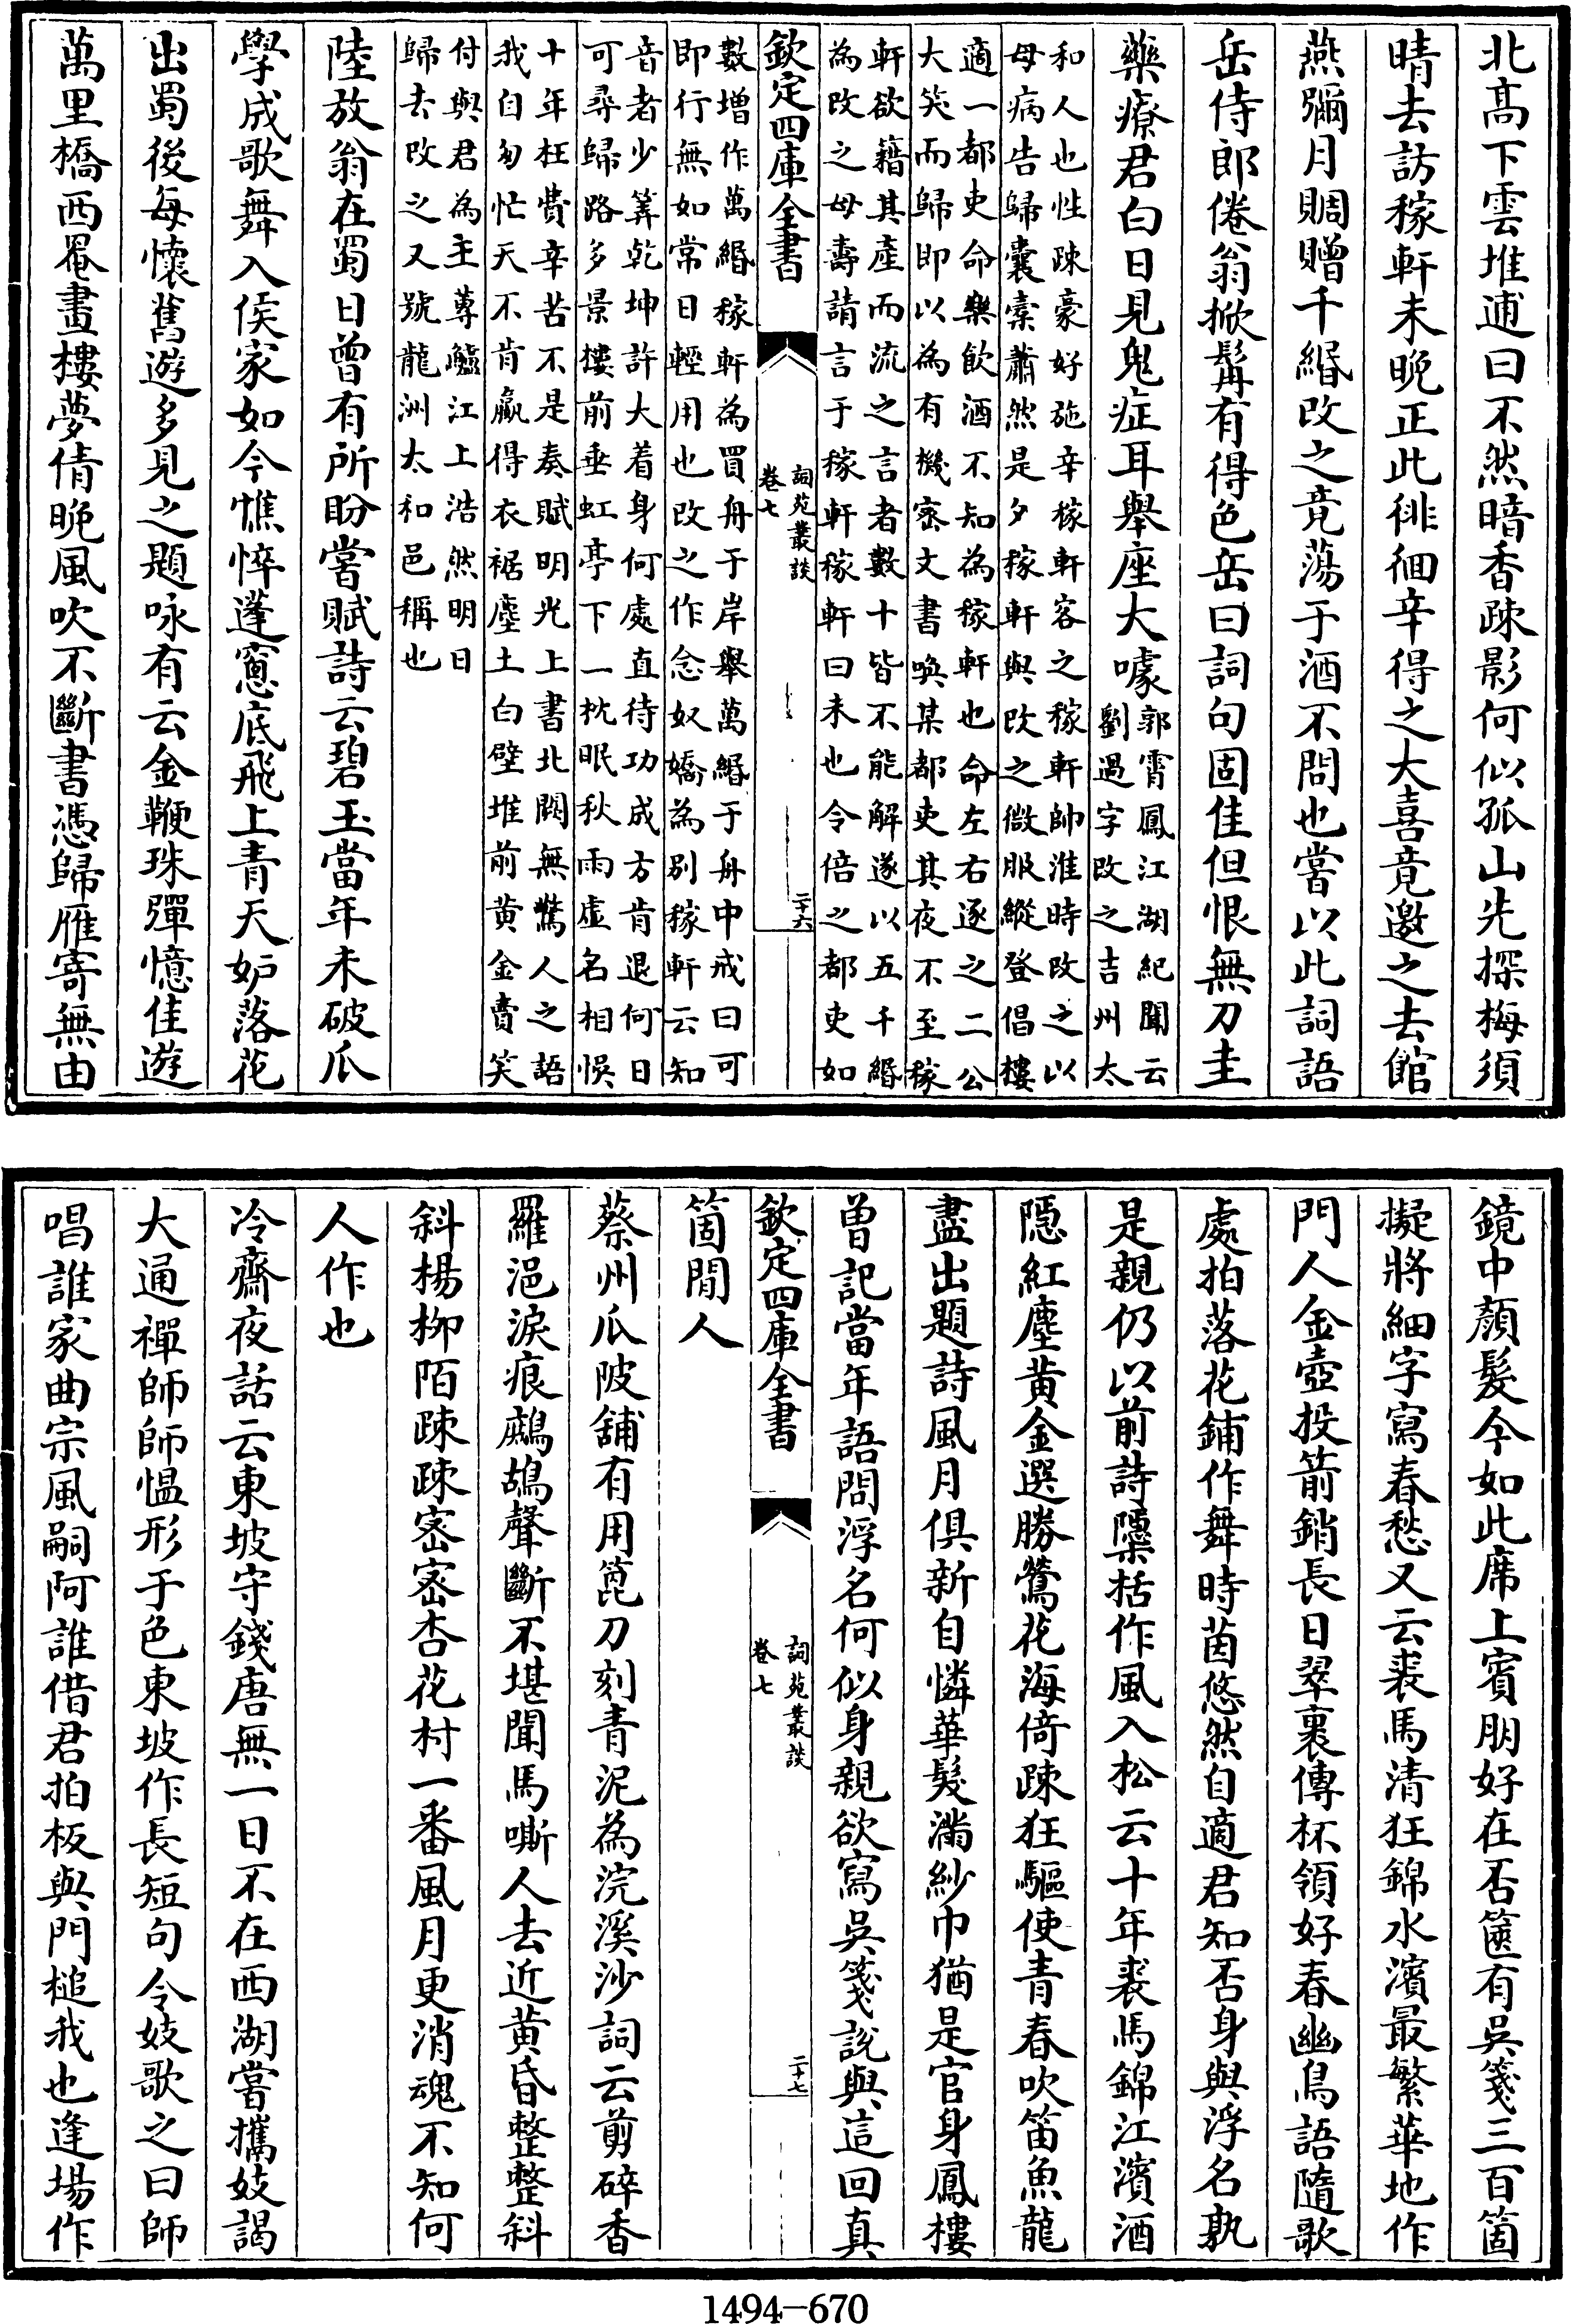 北髙下雲堆逋曰不然暗香疎影何似孤山先探梅須
晴去訪稼軒未晚正此徘徊辛得之大喜竟邀之去館
燕彌月賙贈千緡改之竟蕩于酒不問也嘗以此詞語
岳侍郎倦翁掀髯有得色岳曰詞句固佳但恨無刀圭
藥療君白日見鬼症耳舉座大噱
郭霄鳳江湖紀聞云
劉過字改之吉州太
和人也性疎豪好施辛稼軒客之稼軒帥淮時改之以
母病告歸囊橐蕭然是夕稼軒與改之微服縱登倡樓
適一都吏命樂飲酒不知為稼軒也命左右逐之二公
大笑而歸即以為有機宻文書喚某都吏其夜不至稼
軒欲籍其產而流之言者數十皆不能解遂以五千緡
為改之母壽請言于稼軒稼軒曰未也令倍之都吏如
欽定四庫全書
詞苑叢談
卷七
二十六
數增作萬緡稼軒為買舟于岸舉萬緡于舟中戒曰可
即行無如常日輕用也改之作念奴嬌為別稼軒云知
音者少筭乾坤許大着身何處直待功成方肯退何日
可尋歸路多景樓前垂虹亭下一枕眠秋雨虛名相悞
十年枉費辛苦不是奏賦明光上書北闕無驚人之語
我自匆忙天不肯贏得衣裾塵土白壁堆前黄金賣笑
付與君為主蓴鱸江上浩然明日
歸去改之又號龍洲太和邑稱也
陸放翁在蜀日曾有所盼嘗賦詩云碧玉當年未破瓜
學成歌舞入侯家如今憔悴蓬窻底飛上青天妒落花
出蜀後每懷舊遊多見之題咏有云金鞭珠彈憶佳遊
萬里橋西罨畫樓夢倩晚風吹不斷書憑歸雁寄無由
鏡中顏髮今如此席上賓朋好在否篋有吳箋三百箇
擬將細字寫春愁又云裘馬清狂錦水濱最繁華地作
門人金壺投箭銷長日翠裹傳杯領好春幽鳥語隨歌
處拍落花鋪作舞時茵悠然自適君知否身與浮名孰
是親仍以前詩檃括作風入松云十年裘馬錦江濱酒
隱紅塵黄金選勝鶯花海倚疎狂驅使青春吹笛魚龍
盡出題詩風月俱新自憐華髮滿紗巾猶是官身鳳樓
曽記當年語問浮名何似身親欲寫吳箋說與這回真
欽定四庫全書
詞苑叢談
卷七
二十七
箇閒人
蔡州瓜陂舖有用篦刀刻青泥為浣溪沙詞云剪碎香
羅浥淚痕鷓鴣聲斷不堪聞馬嘶人去近黄昏整整斜
斜楊柳陌疎疎宻宻杏花村一番風月更消魂不知何
人作也
冷齋夜話云東坡守錢唐無一日不在西湖嘗攜妓謁
大通禪師師愠形于色東坡作長短句令妓歌之曰師
唱誰家曲宗風嗣阿誰借君拍板與門槌我也逢場作
1494—670